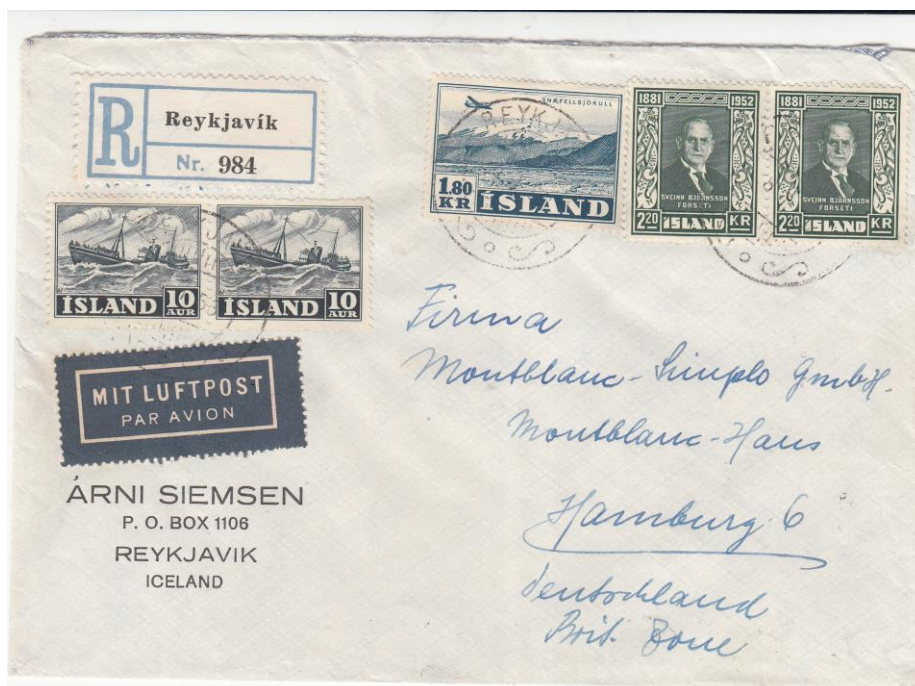 R
Reykjavík
Nr. 984
SNÆFELLSJÖKULL
1.80
KR
ÍSLAND
REYKJ
1881 1952
SVEINN BJÖRNSSON
FORSETI
2.20 ÍSLAND KR
1881 1952
SVEINN BJÖRNSSON
FORSETI
2.20 ÍSLAND KR
ÍSLAND 10
AUR
ÍSLAND 10
AUR
MIT LUFTPOST
PAR AVION
ÁRNI SIEMSEN
P. O. BOX 1106
REYKJAVIK
ICELAND
Firma
Montblanc-Simplo GmbH.
Montblanc-Haus
Hamburg 6
Deutschland
Brit. Zone